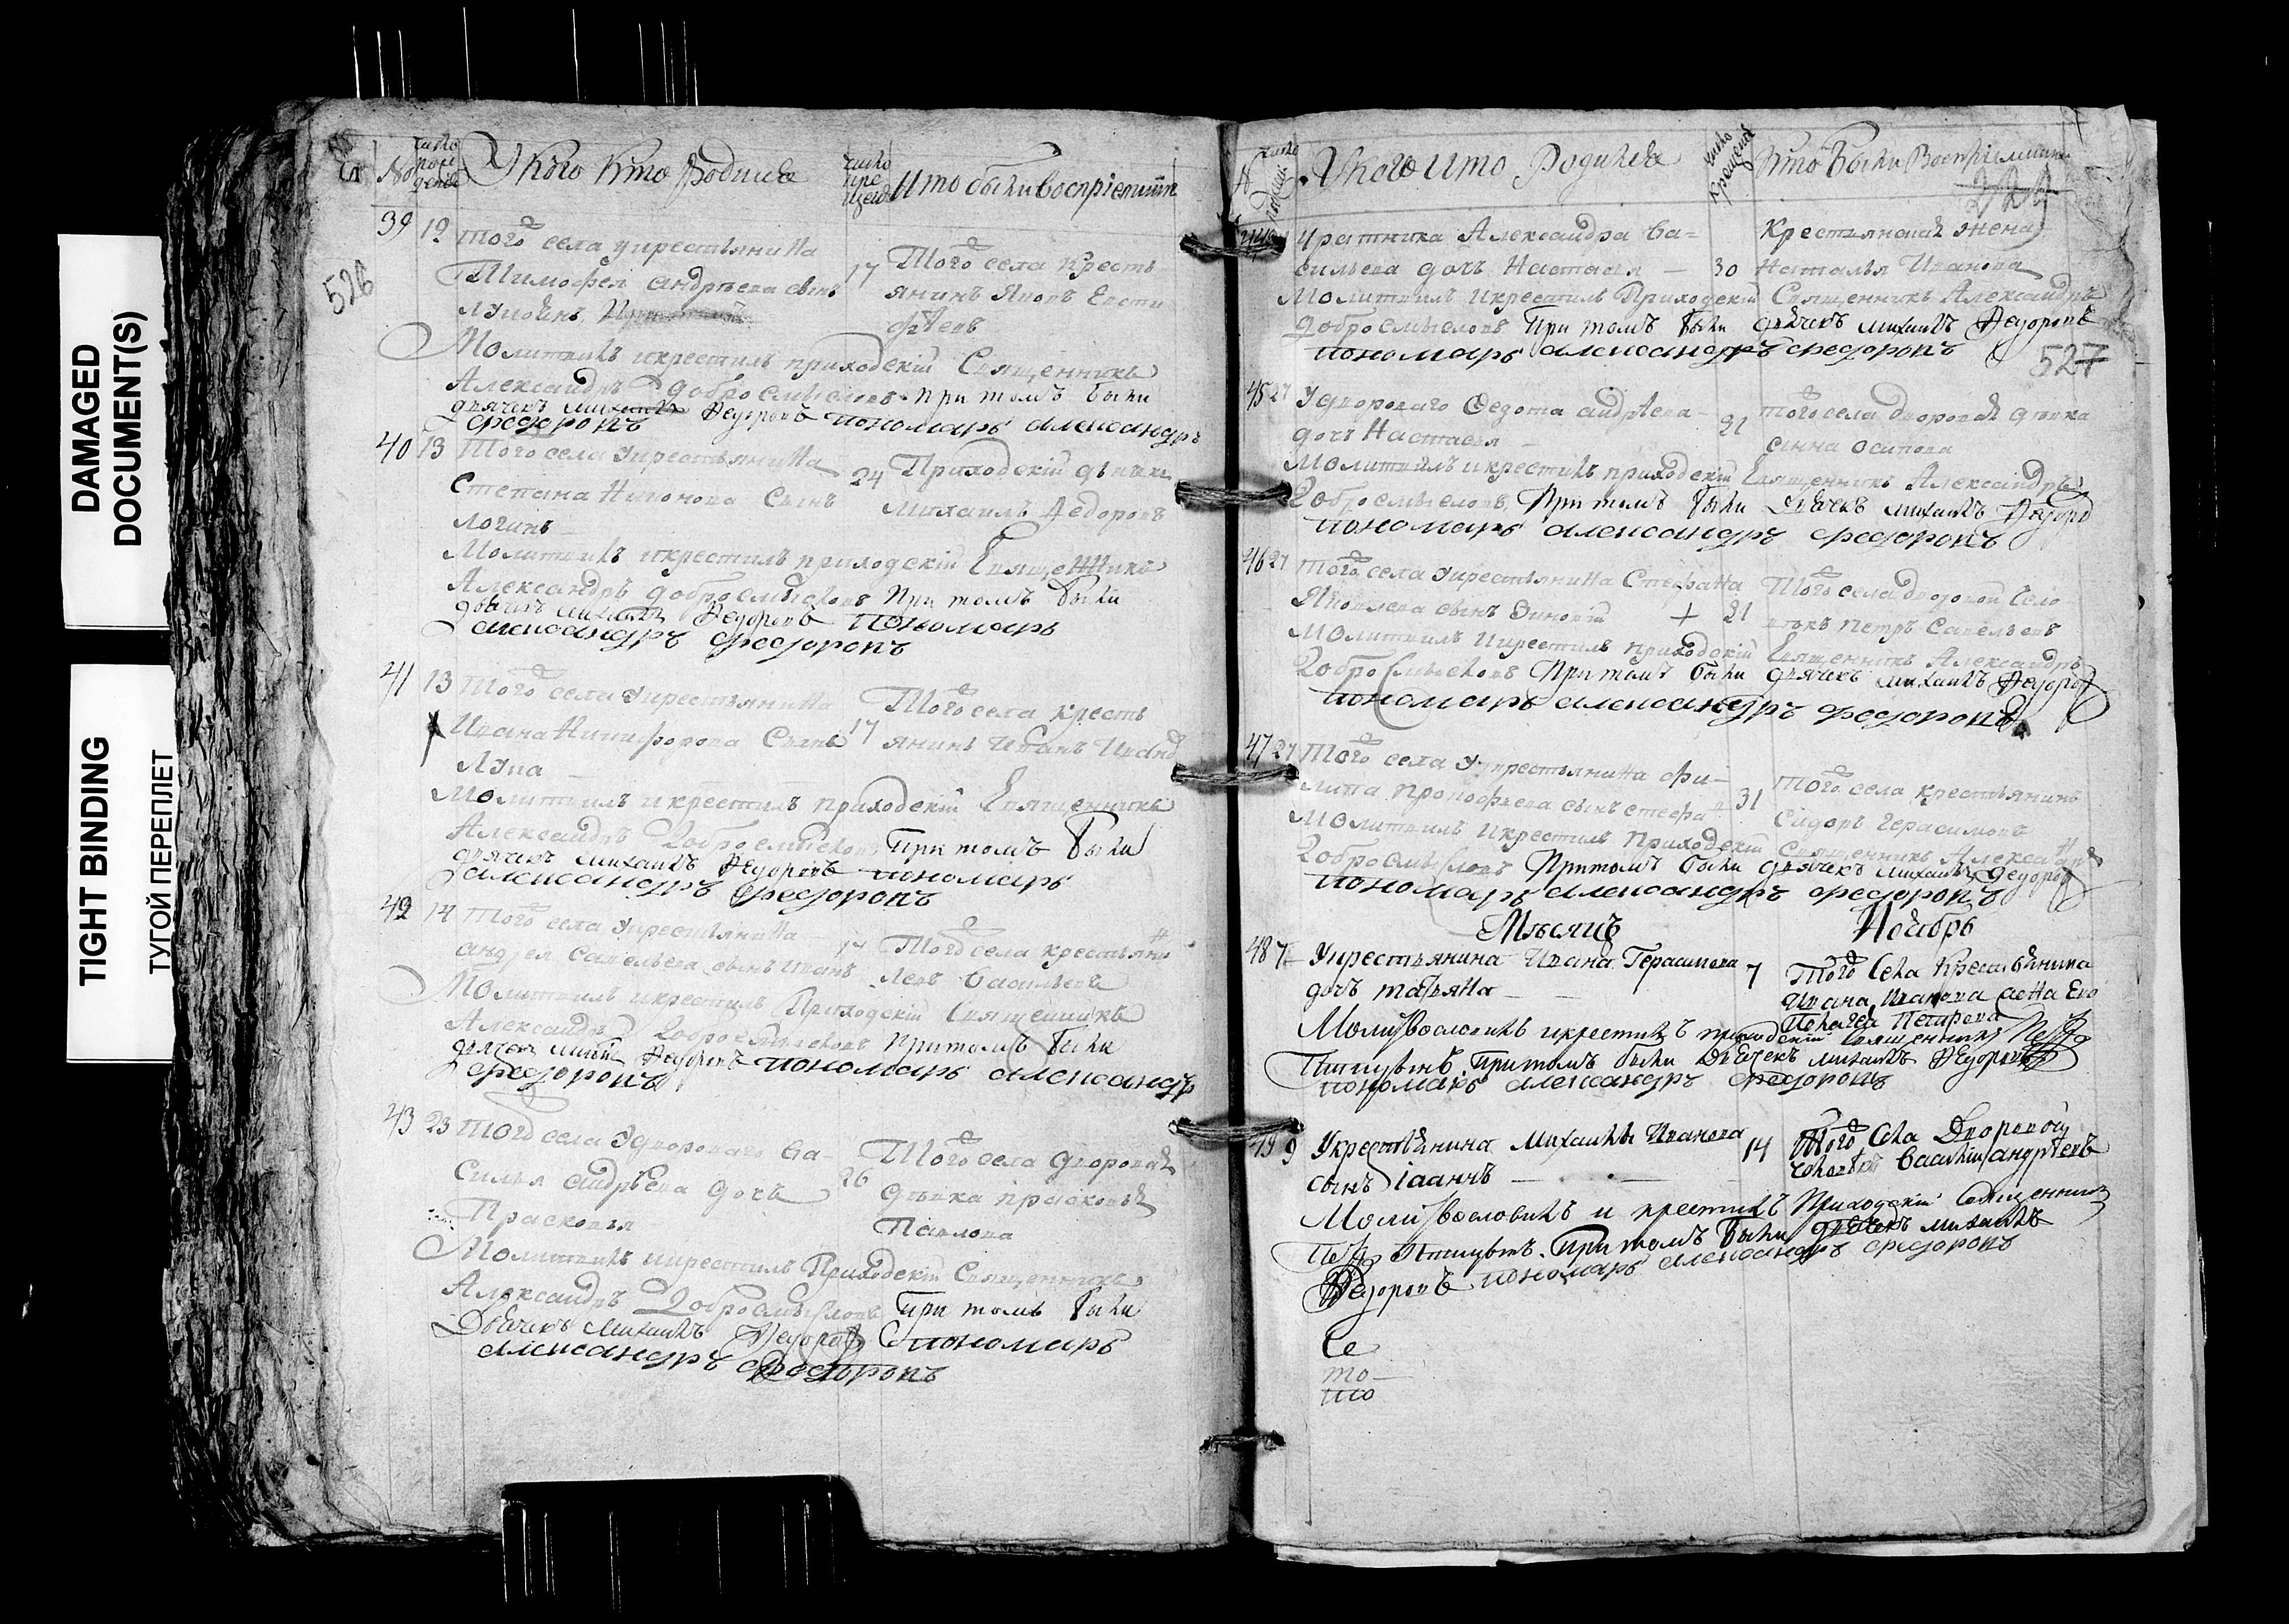 DAMAGED
DOCUMENT(S)
TIGHT BINDING
ТУГОЙ ПЕРЕПЛЕТ
№ число рождения
У кого кто родился
число крещения
Кто были восприемники
526
39 12 Того села у крестьянина
Тимофея Андреева сынъ
Того села кресть
янинъ Яковъ Евсти
феевъ
17
Молитвилъ и крестилъ приходскій Священникъ
Александръ Добросмысловъ При томъ были
дьячекъ Михаилъ Федоровъ пономарь Александръ
Федоровъ
40 13 Того села у крестьянина
Степана Никонова Сынъ
Логинъ
24
Приходскій дьячекъ
Михаилъ Федоровъ
Молитвилъ и крестилъ приходскій Священникъ
Александръ Добросмысловъ При томъ были
дьячекъ Михаилъ Федоровъ Пономарь
Александръ Федоровъ
41 13 Того села у крестьянина
Ивана Никифорова Сынъ
Лука
17
Того села кресть
янинъ Иванъ Иванъ
Молитвилъ и крестилъ приходскій Священникъ
Александръ Добросмысловъ При томъ были
дьячекъ Михаилъ Федоровъ пономарь
Александръ Федоровъ
42 14 Того села у крестьянина
Андрея Савельева сынъ Иванъ
17
Того села крестьянин
Левъ Васильевъ
Молитвилъ и крестилъ Приходскій Священникъ
Александръ Добросмысловъ При томъ были
дьячекъ Михаилъ Федоровъ пономарь Александръ
Федоровъ
43 23 Того села у двороваго Ва-
силья Андреева дочь
Прасковья
26
Того села дворовая
девка Прасковья
Павлова
Молитвилъ и крестилъ Приходскій Священникъ
Александръ Добросмысловъ При томъ были
Дьячекъ Михаилъ Федоровъ пономарь
Александръ Федоровъ
У кого кто родился
число крещения
Кто были восприемники
527
Александра Ва-
сильева дочь Настасья — 30
Крестьянская жена
Наталья Иванова
Молитвилъ и крестилъ Приходскій Священникъ Александръ
Добросмысловъ При томъ были дьячекъ Михаилъ Федоровъ
пономарь Александръ Федоровъ
45 27 У двороваго Федота Андреева
дочь Настасья —
31
того села дворовая девка
Анна Осипова
Молитвилъ и крестилъ приходскій Священникъ Александръ
Добросмысловъ При томъ были Дьячекъ Михаилъ Федоро
пономарь Александръ Федоровъ
46 27 Того села у крестьянина Стефана
Яковлева сынъ Зиновій + 21
Того села дворовой Чело
векъ Петръ Савельевъ
Молитвилъ и крестилъ приходскій Священникъ Александръ
Добросмысловъ При томъ были дьячекъ Михаилъ Федоро
пономарь Александръ Федоровъ
47 27 Того села у крестьянина Фи-
липа Прокофьева сынъ Стефа
31
того села крестьянинъ
Сидоръ Герасимовъ
Молитвилъ и крестилъ Приходскій Священникъ Александръ
Добросмысловъ При томъ были дьячекъ Михаилъ Федоро
пономарь Александръ Федоровъ
Месяцъ Ноябрь
48 7 У крестьянина Ивана Герасимова 7
дочь Татьяна —
Того села Крестьянина
Ивана Иванова жена Его
Пелагея Петрова
Молитвословилъ и крестилъ приходскій священникъ Петръ
При томъ были Дьячекъ Михаилъ Федоровъ
пономарь Александръ Федоровъ
49 9 У крестьянина Михайлы Иванова 14
сынъ Іаннъ —
Того села Дворовой
человекъ Василій Андреевъ
Молитвословилъ и крестилъ Приходскій Священникъ
Петръ При томъ были дьячекъ Михаилъ
Федоровъ пономарь Александръ Федоровъ
Се
то-